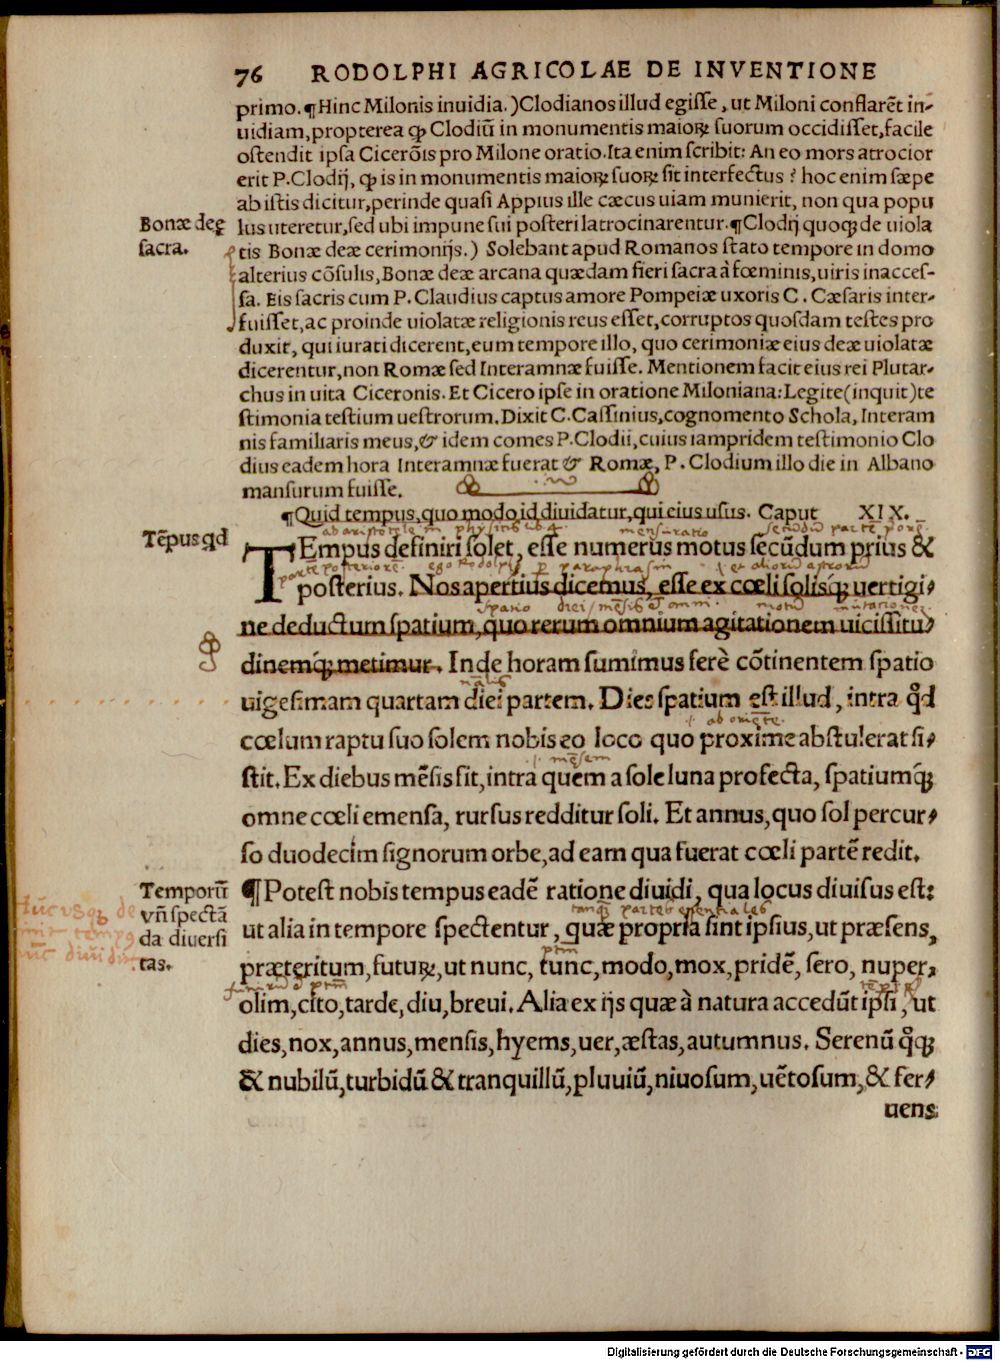 76 RODOLPHI AGRICOLAE DE INVENTIONE
primo.¶Hinc Milonis inuidia.)Clodianos illud egiſſe, ut Miloni conflarēt in-
uidiam,propterea ꝙ Clodiū in monumentis maioꝝ ſuorum occidiſſet,facile
oſtendit ipſa Cicerōis pro Milone oratio.Ita enim ſcribit: An eo mors atrocior
erit P.Clodij, ꝙ is in monumentis maioꝝ ſuoꝝ ſit interfectus? hoc enim ſæpe
ab iſtis dicitur,perinde quaſi Appius ille cæcus uiam munierit, non qua popu
Bonæ deę
lus uteretur,ſed ubi impune ſui poſteri latrocinarentur.¶Clodij quoqꝫ de uiola
ſacra.
tis Bonæ deæ cerimonijs.) Solebant apud Romanos ſtato tempore in domo
alterius cōſulis,Bonæ deæ arcana quædam fieri ſacra à fœminis,uiris inacceſ-
ſa. Eis ſacris cum P. Claudius captus amore Pompeiæ uxoris C. Cæſaris inter-
fuiſſet,ac proinde uiolatæ religionis reus eſſet,corruptos quoſdam teſtes pro
duxit, qui iurati dicerent,eum tempore illo, quo cerimoniæ eius deæ uiolatæ
dicerentur,non Romæ ſed Interamnæ fuiſſe. Mentionem facit eius rei Plutar-
chus in uita Ciceronis. Et Cicero ipſe in oratione Miloniana:Legite(inquit)te
ſtimonia teſtium ueſtrorum.Dixit C.Caſſinius,cognomento Schola, Interam
nis familiaris meus,& idem comes P.Clodii,cuius iampridem teſtimonio Clo
dius eadem hora Interamnæ fuerat & Romæ, P. Clodium illo die in Albano
manſurum fuiſſe.
¶Quid tempus,quo modo id diuidatur,qui eius uſus. Caput XIX.
ab aristotele in physicis lib 4. mensuratio secūdū partē
Tēpus qd
TEmpus definiri ſolet, eſſe numerus motus ſecūdum prius &
parte posteriore. ego Rodolphus per paraphrasim et aliorū astrorū
poſterius. Nos apertius dicemus, eſſe ex cœli ſolisqꝫ uertigi-
spatio diei/mēsis motū mutationes
ne deductum ſpatium,quo rerum omnium agitationem uiciſſitu-
dinemqꝫ metimur. Inde horam ſumimus ferè cōtinentem ſpatio
uigeſimam quartam diei partem. Dies ſpatium eſt illud, intra qd
ab oriēte.
cœlum raptu ſuo ſolem nobis eo loco quo proxime abſtulerat ſi-
mēsem
ſtit. Ex diebus mēſis fit,intra quem a ſole luna profecta, ſpatiumqꝫ
omne cœli emenſa, rurſus redditur ſoli. Et annus,quo ſol percur-
ſo duodecim ſignorum orbe,ad eam qua fuerat cœli partē redit.
Temporū
¶Poteſt nobis tempus eadē ratione diuidi, qua locus diuiſus eſt:
vñ ſpectā
tanqꝫ partes essentiales
ut alia in tempore ſpectentur, quæ propria ſint ipſius,ut præſens,
da diuerſi
tas.
præteritum,futuꝝ,ut nunc, tunc,modo,mox,pridē, ſero, nuper,
olim,cito,tarde,diu,breui. Alia ex ijs quæ à natura accedūt ipſi, ut
dies,nox,annus,menſis,hyems,uer,æſtas,autumnus. Serenū qqꝫ
& nubilū,turbidū & tranquillū,pluuiū,niuoſum,uētoſum,& fer-
uens
Digitalisierung gefördert durch die Deutsche Forschungsgemeinschaft - DFG